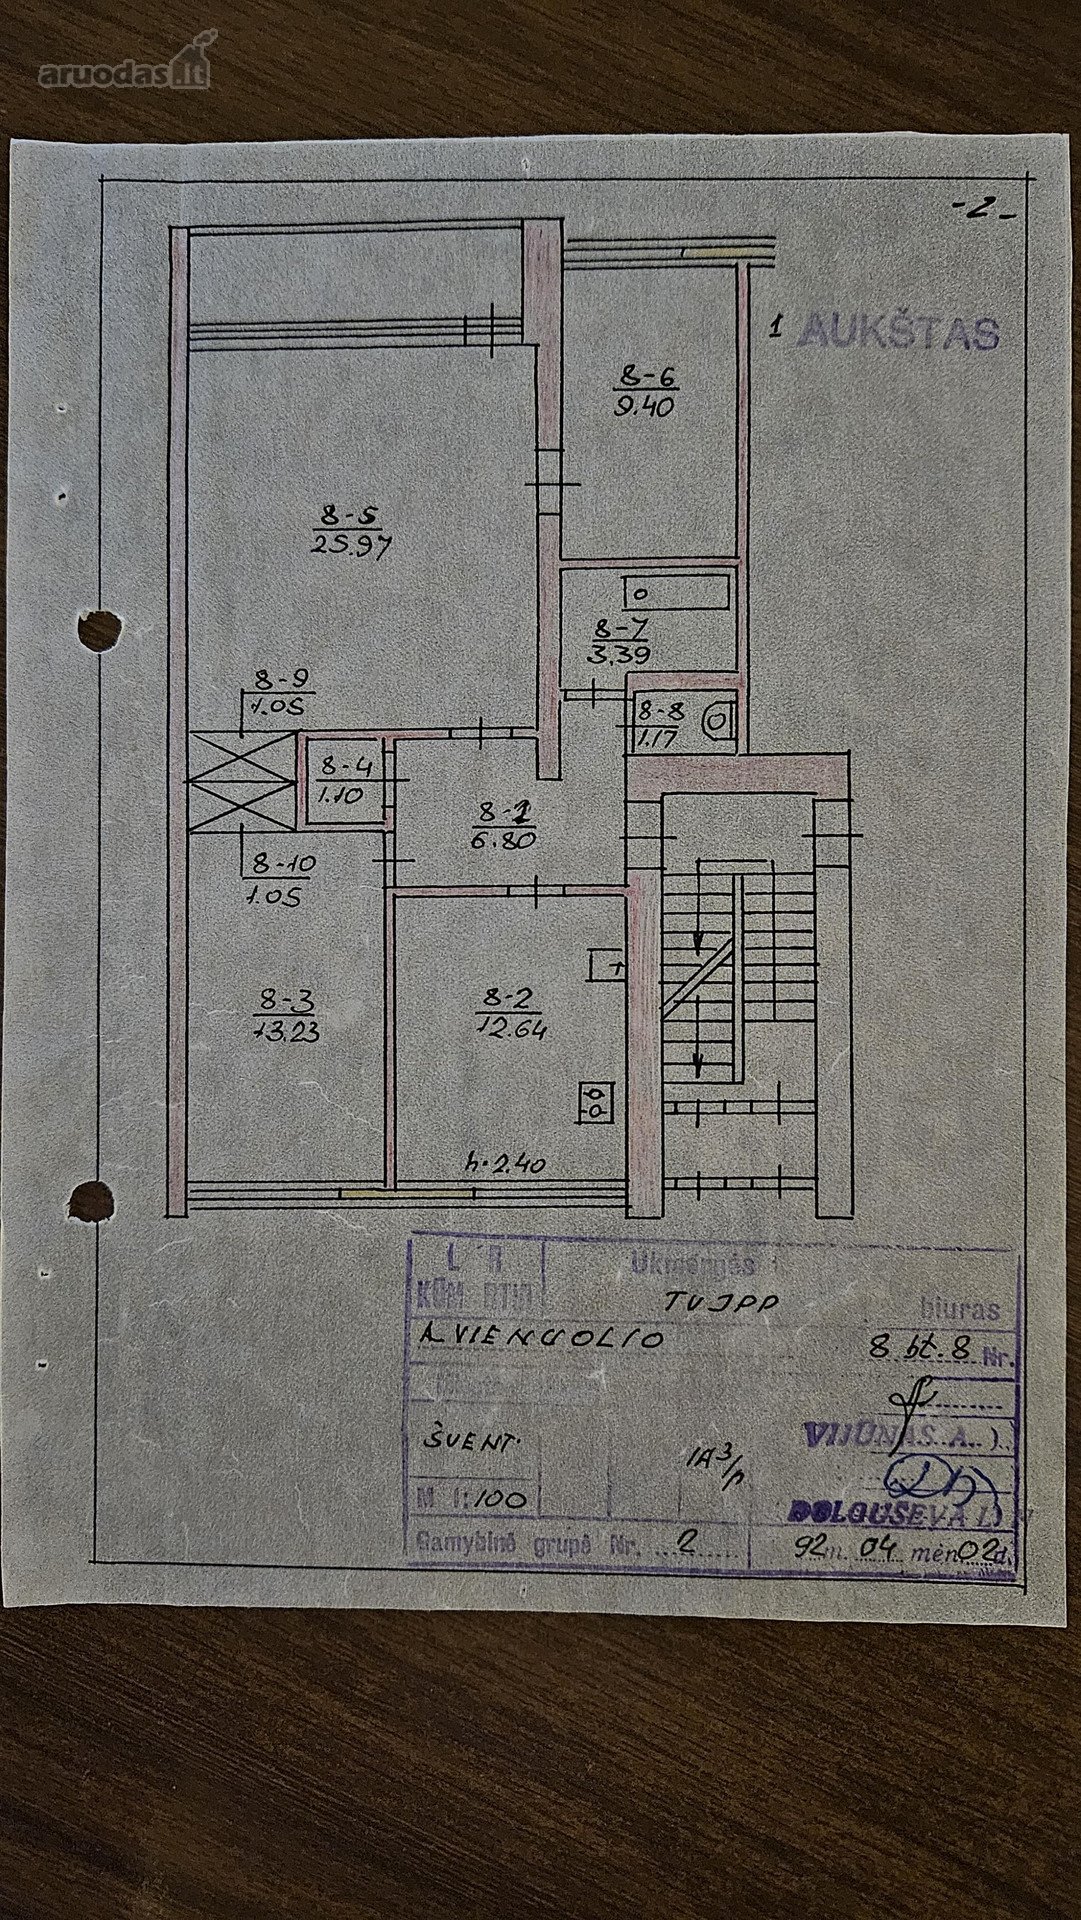 aruodas.it
-2-
1 AUKŠTAS
8-6
9.40
8-5
25.97
8-7
3.39
8-9
1.05
8-8
1.17
8-4
1.10
8-1
6.80
8-10
1.05
8-3
13.23
8-2
12.64
h-2.40
L R Ukmergės
KŪM
TVJPP biuras
A. VIENUOLIO 8 bt. 8 Nr.
ŠVENT. 1A3/p VIJŪNAS A.
M 1:100 DOLGUŠEVA L.
Gamybinė grupė Nr. 2 92 m. 04 mėn 02 d.